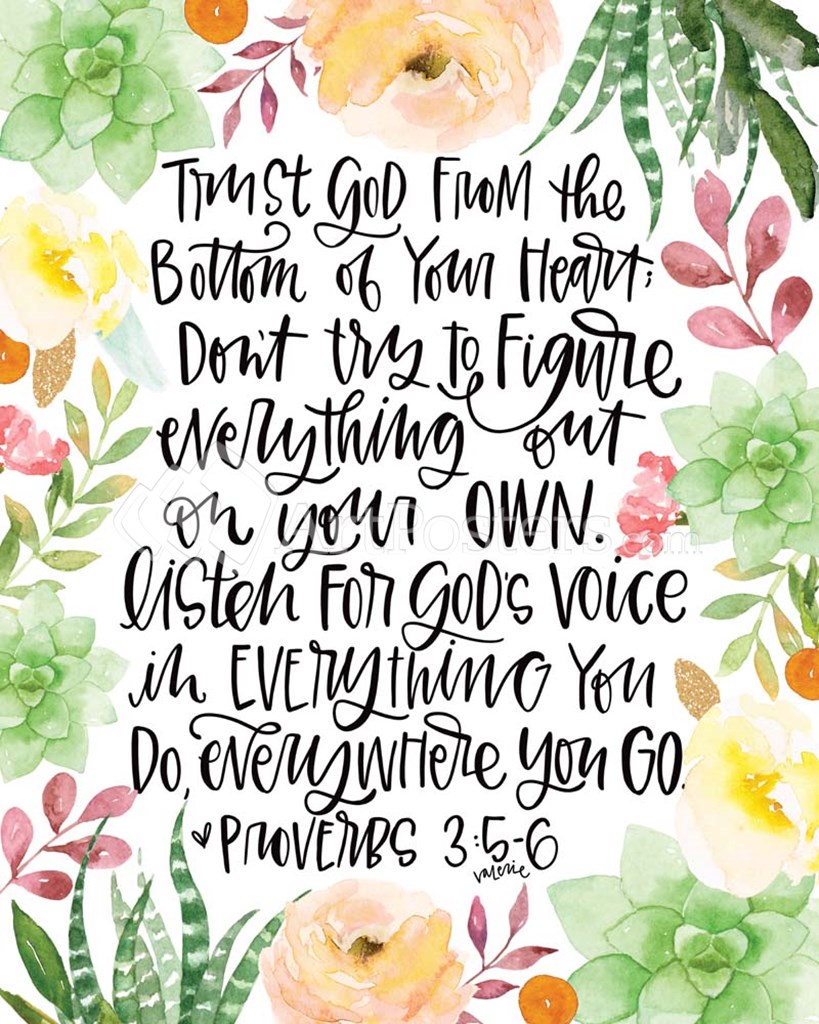 Trust God From the
Bottom of Your Heart;
Don't try to Figure
everything out
on your OWN.
ArtPosters.com
listen For God's Voice
in EVERYthING You
Do, everywhere you GO.
♥ Proverbs 3:5-6
valerie